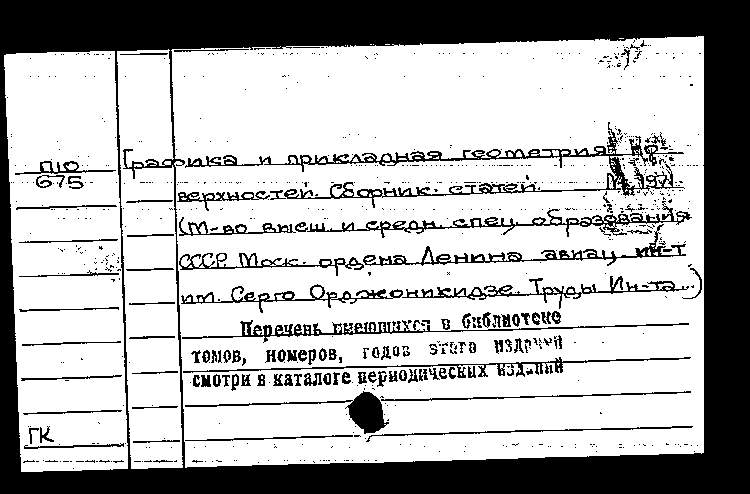 П10
675
Графика и прикладная геометрия по-
верхностей. Сборник. статей. М. 1971.
(М-во высш. и средн. спец. образования
СССР. Моск. ордена Ленина авиац. ин-т
им. Серго Орджоникидзе. Труды Ин-та...)
Перечень имеющихся в библиотеке
томов, номеров, годов этого издания
смотри в каталоге периодических изданий
ГК